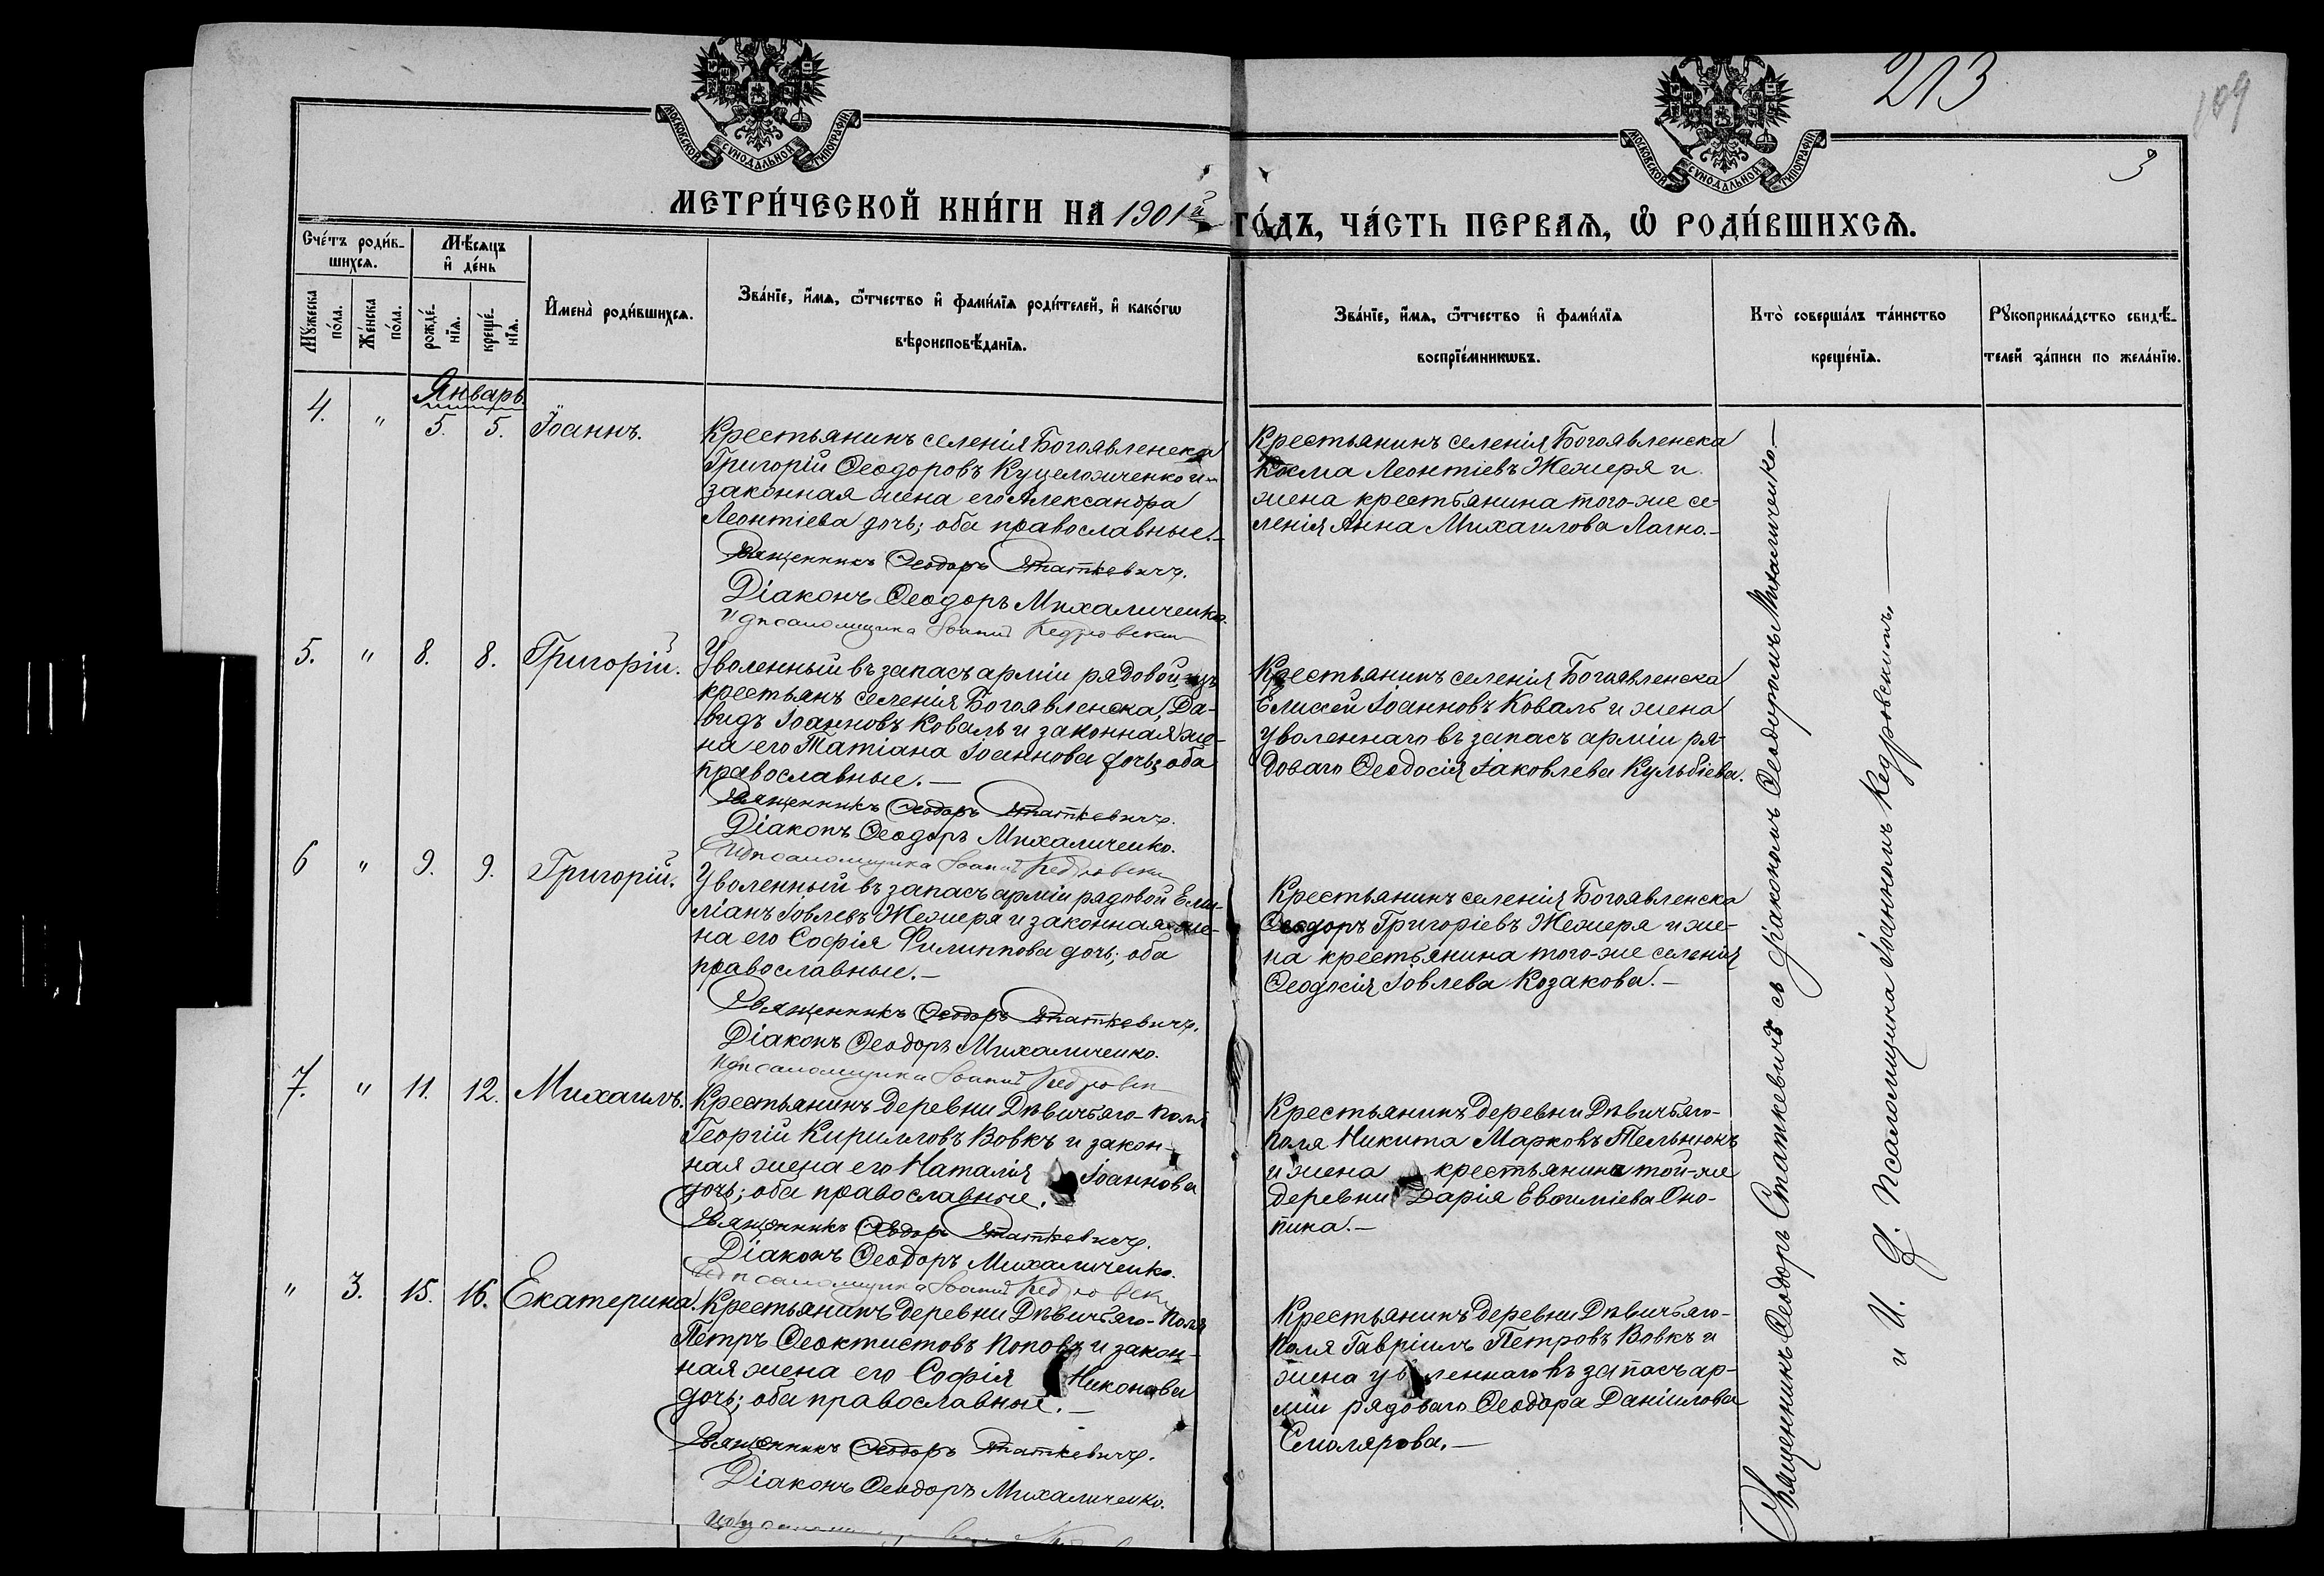 213
109
3
МОСКОВСКОЙ СѴНОДАЛЬНОЙ ТИПОГРАФІИ
МОСКОВСКОЙ СѴНОДАЛЬНОЙ ТИПОГРАФІИ
МЕТРИ́ЧЕСКОЙ КНИ́ГИ НА 1901й ГО́ДЪ, ЧА́СТЬ ПЕРВАѦ, Ѡ҆ РОДИ́ВШИХСѦ.
Сче́тъ роди́в-
шихсѧ.
Мꙋ́жеска по́ла.
Же́нска по́ла.
Мѣ́сѧцъ
и҆ де́нь
рожде́-
нїѧ.
креще́-
нїѧ.
И҆мена̀ роди́вшихсѧ.
Зва́нїе, и҆́мѧ, ѻ҆́тчество и҆ фами́лїѧ роди́телей, и҆ како́гѡ
вѣроисповѣ́данїѧ.
Зва́нїе, и҆́мѧ, ѻ҆́тчество и҆ фами́лїѧ
воспрїе́мникѡвъ.
Кто̀ соверша́лъ та́инство
креще́нїѧ.
Рꙋкоприкла́дство свидѣ́-
телей за́писи по жела́нїю.
Январь.
4. " 5. 5. Іоаннъ.
Крестьянинъ селенія Богоявленска
Григорій Ѳеодоровъ Куцеложченко и
законная жена его Александра
Леонтіева дочь; оба православные.-
Священникъ Ѳеодоръ Статкевичъ.
Діаконъ Ѳеодоръ Михаличенко.
И д псаломщика Іоаннъ Кедровскій
Крестьянинъ селенія Богоявленска
Косма Леонтіевъ Жежеря и
жена крестьянина того-же се-
ленія Анна Михаилова Лагно.-
5. " 8. 8. Григорій.
Уволенный въ запасъ арміи рядовой, изъ
крестьянъ селенія Богоявленска, Да-
видъ Іоанновъ Коваль и законная же-
на его Татіана Іоаннова дочь; оба
православные.-
Священникъ Ѳеодоръ Статкевичъ.
Діаконъ Ѳеодоръ Михаличенко.
И д псаломщика Іоаннъ Кедровскій
Крестьянинъ селенія Богоявленска
Елисей Іоанновъ Коваль и жена
уволеннаго въ запасъ арміи ря-
доваго Ѳеодосія Іаковлева Кульбіева.
6 " 9. 9. Григорій.
Уволенный въ запасъ арміи рядовой Еми-
ліанъ Іовлевъ Жежеря и законная же-
на его Софія Филиппова дочь; оба
православные.-
Священникъ Ѳеодоръ Статкевичъ.
Діаконъ Ѳеодоръ Михаличенко.
И д псаломщика Іоаннъ Кедровскій
Крестьянинъ селенія Богоявленска
Ѳеодоръ Григоріевъ Жежеря и же-
на крестьянина того-же селенія
Ѳеодосія Іовлева Козакова.-
7. " 11. 12. Михаилъ.
Крестьянинъ деревни Дѣвичьяго-Поля
Георгій Кирилловъ Вовкъ и закон-
ная жена его Наталія Іоаннова
дочь; оба православные.
Священникъ Ѳеодоръ Статкевичъ.
Діаконъ Ѳеодоръ Михаличенко.
И д псаломщика Іоаннъ Кедровскій
Крестьянинъ деревни Дѣвичьяго-
Поля Никита Марковъ Тельнюкъ
и жена крестьянина той-же
деревни Дарія Евѳиміева Оно-
пика.-
" 3. 15. 16. Екатерина.
Крестьянинъ деревни Дѣвичьяго-Поля
Петръ Ѳеоктистовъ Поповъ и закон-
ная жена его Софія Никонова
дочь; оба православные.-
Священникъ Ѳеодоръ Статкевичъ.
Діаконъ Ѳеодоръ Михаличенко.
Крестьянинъ деревни Дѣвичьяго-
Поля Гавріилъ Петровъ Вовкъ и
жена уволеннаго въ запасъ ар-
міи рядоваго Ѳеодора Даніилова
Смолярова.-
Священникъ Ѳеодоръ Статкевичъ съ діакономъ Ѳеодоромъ Михаличенко.-
и И. Д. Псаломщика Іоанномъ Кедровскимъ.-